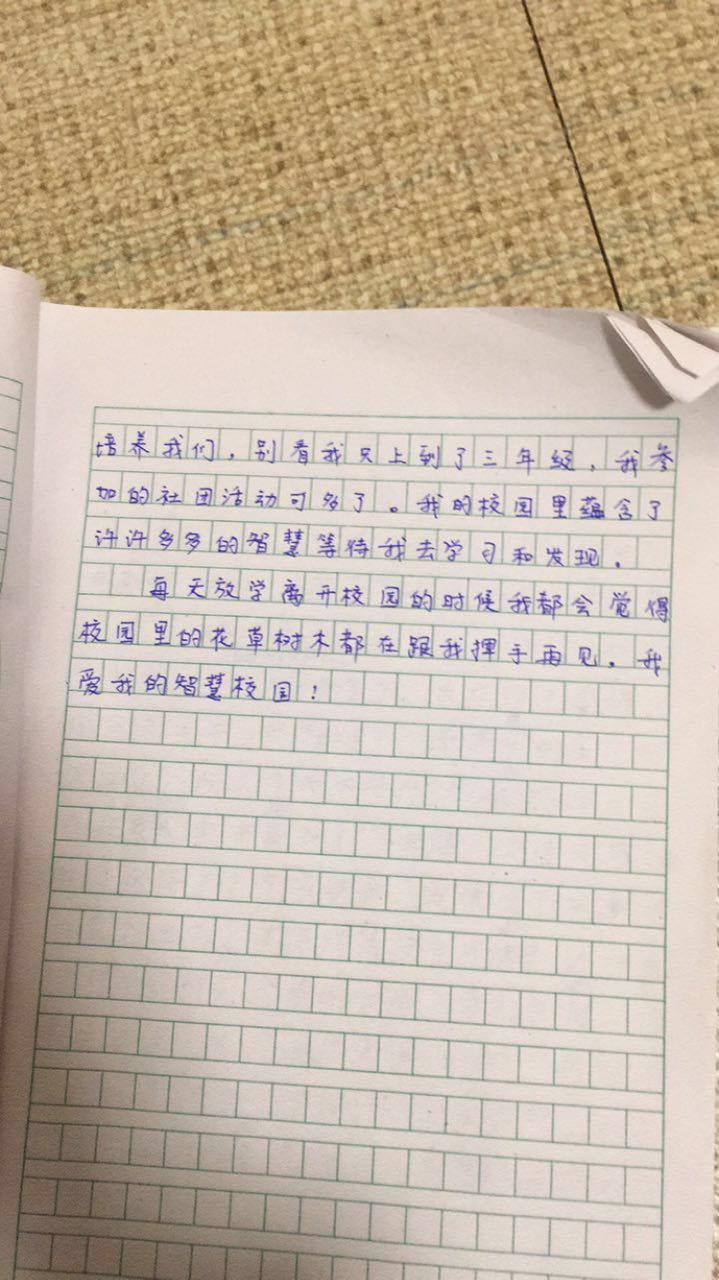 培养我们，别看我只上到了三年级，我参
加的社团活动可多了。我的校园里蕴含了
许许多多的智慧等待我去学习和发现。
每天放学离开校园的时候我都会觉得
校园里的花草树木都在跟我挥手再见。我
爱我的智慧校园！